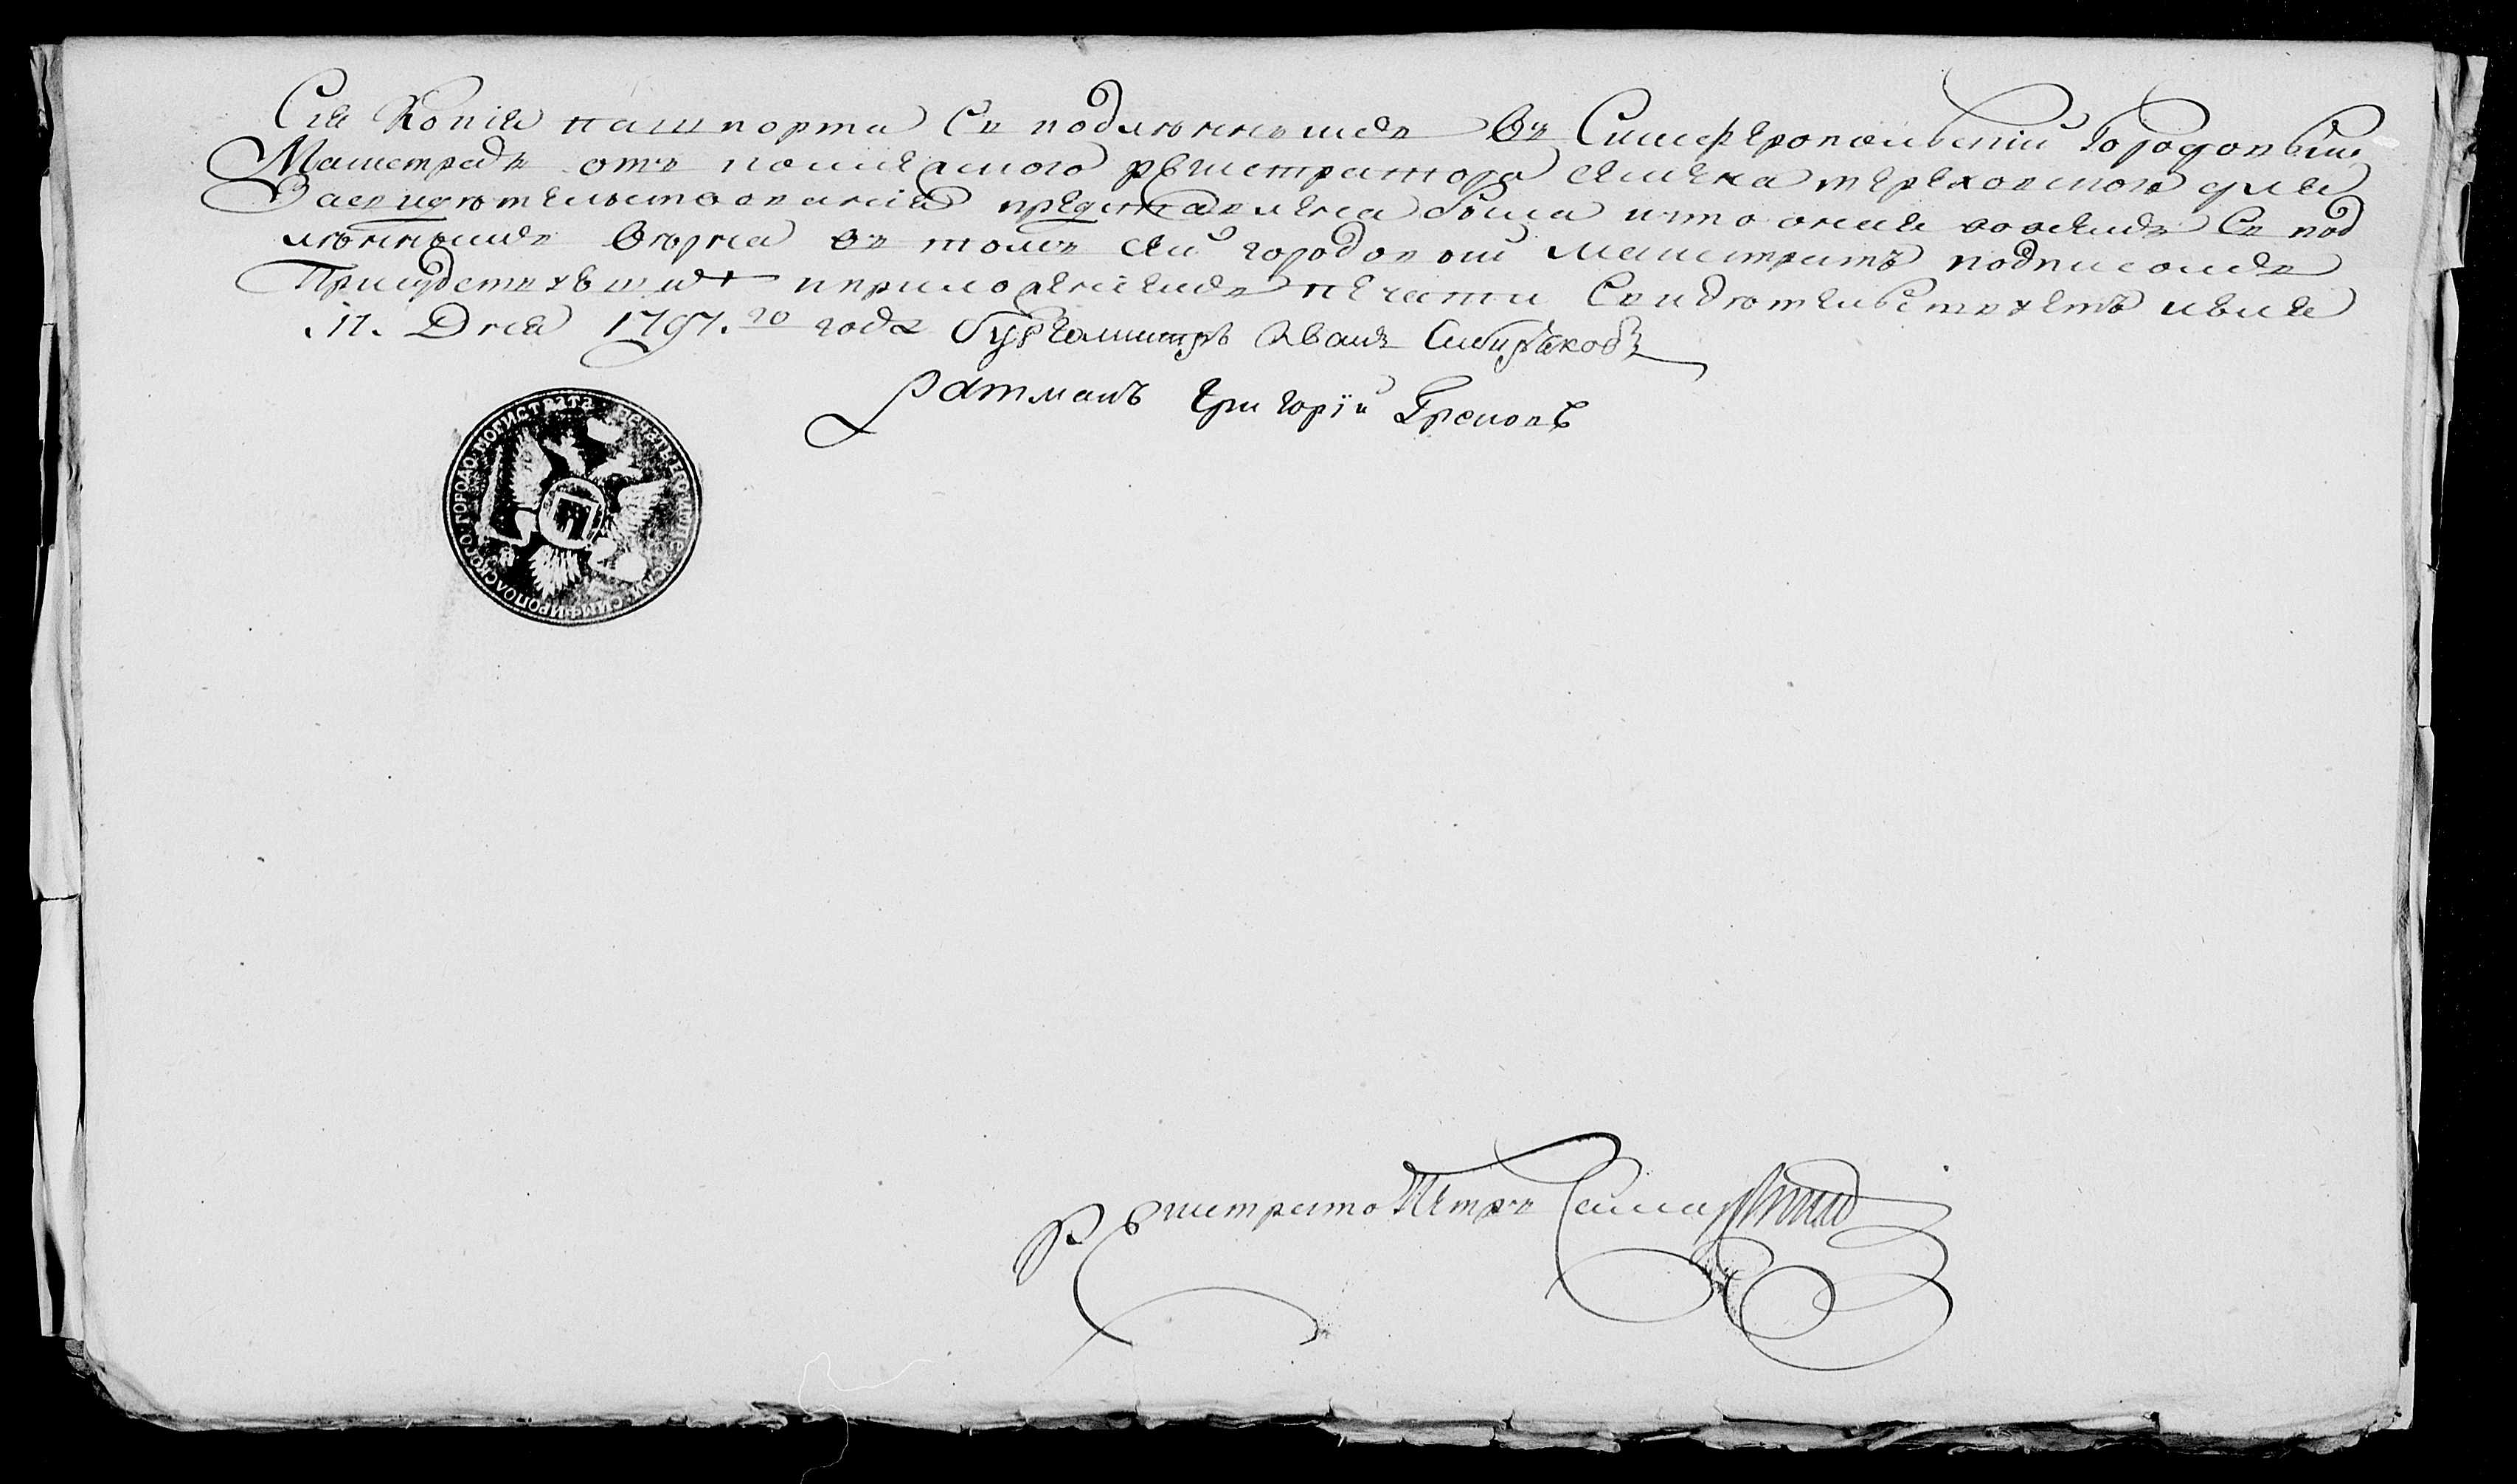 Сія Копія пашпорта Съ подлѣннымъ Въ Симферопольскій Городовый
Магистрадъ отъ регистратора для
Засвидѣтельствованія представлена была и что оная Съ под
лѣннымъ вѣрна въ томъ Сей городовой магистратъ подписомъ
Присудствующихъ и приложеніемъ печати Свидѣтельствуетъ
.17. Дня 1797.го года бургомистръ Иванъ Сибиряковъ
ратманъ Григорій
СИМФИРОПОЛСКОГО ГОРОДО МОГИСТРАТА
Регистраторъ Петръ